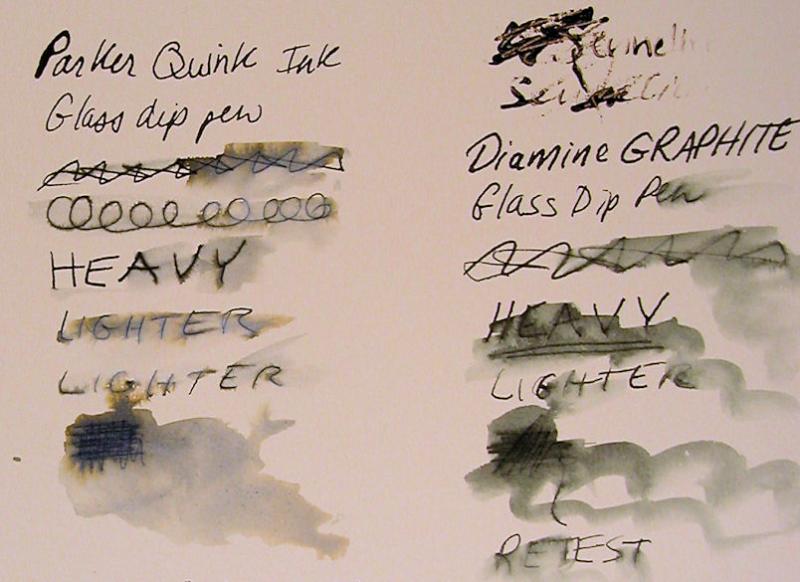 Parker Quink Ink
Glass dip pen
HEAVY
LIGHTER
LIGHTER
Diamine GRAPHITE
Glass Dip Pen
HEAVY
LIGHTER
RETEST